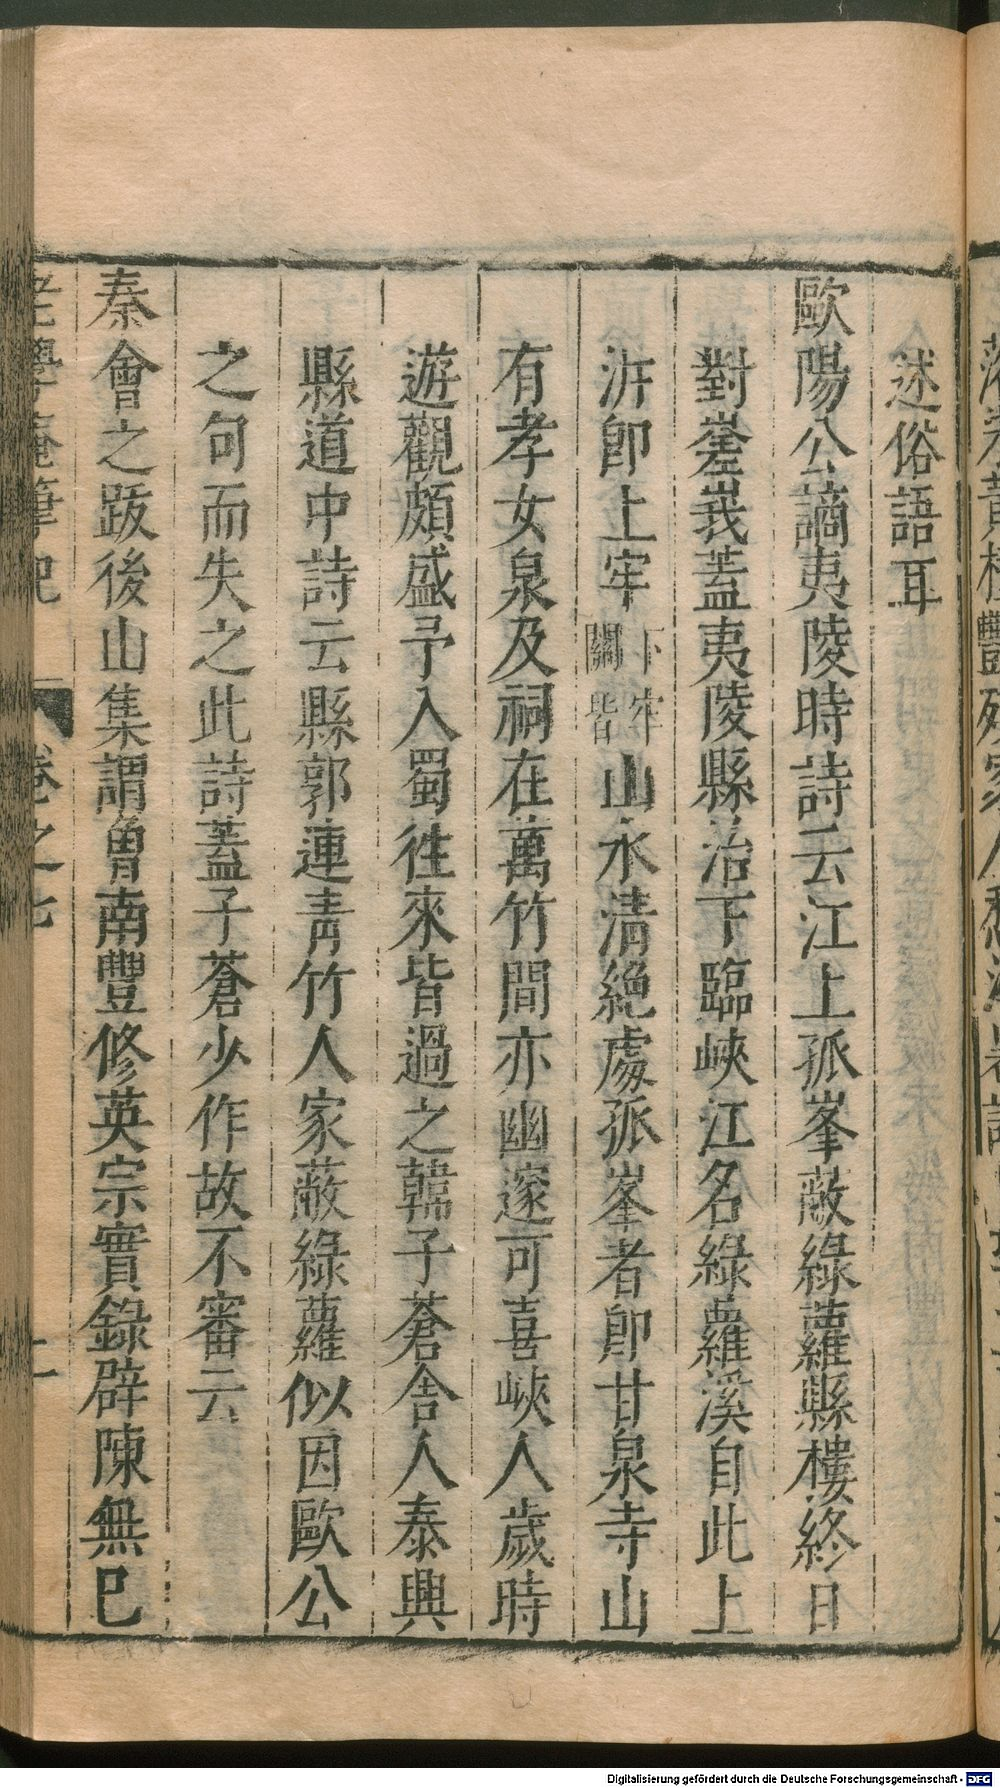 述俗語耳
歐陽公謫夷陵時詩云江上孤峯蔽綠蘿縣樓終日
對嵳峩蓋夷陵縣治下臨峽江名綠蘿溪自此上
泝卽上牢下牢關皆山水清絶處孤峯者卽甘泉寺山
有孝女泉及祠在萬竹間亦幽邃可喜峽人歲時
遊觀頗盛予入蜀徃來皆過之韓子蒼舍人泰興
縣道中詩云縣郭連青竹人家蔽綠蘿似因歐公
之句而失之此詩蓋子蒼少作故不審云
秦會之跋後山集謂曾南豐修英宗實錄辟陳無巳
老學庵筆記 卷之七 十一
Digitalisierung gefördert durch die Deutsche Forschungsgemeinschaft - DFG